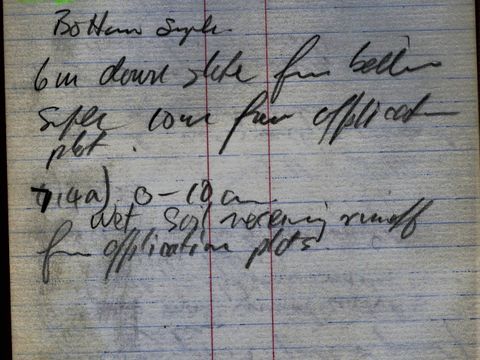 Bottom Sample
6m down slope from bottom
Sample 10m from application
plot.
14a) 0-10 cm
Wet Soil receiving runoff
from application plots